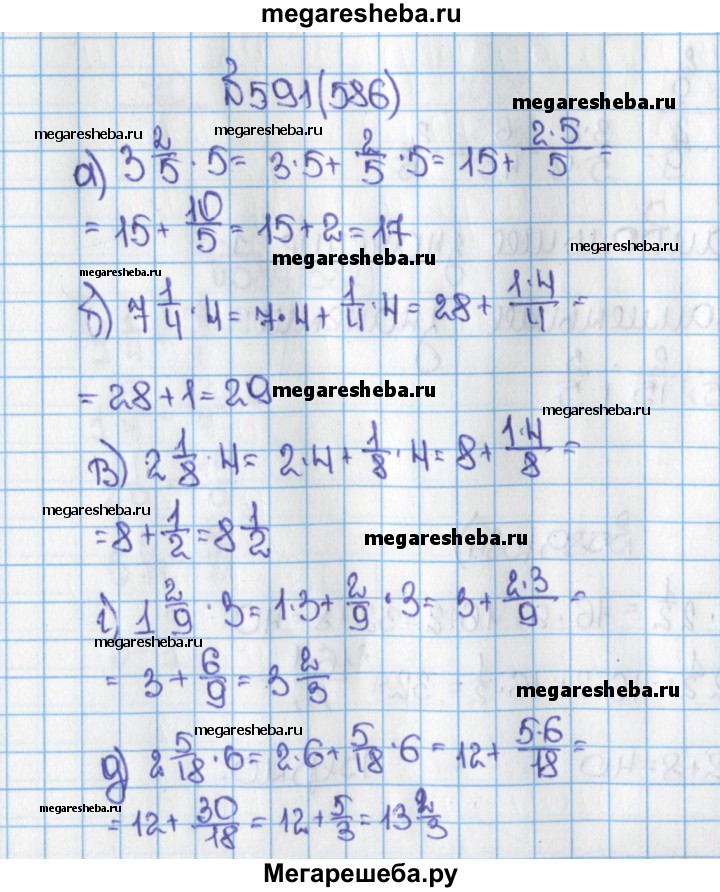 megaresheba.ru
№591(586)
megaresheba.ru
megaresheba.ru
megaresheba.ru
а) 3 2/5 · 5 = 3·5 + 2/5 · 5 = 15 + 2·5/5 =
= 15 + 10/5 = 15 + 2 = 17
megaresheba.ru
megaresheba.ru
megaresheba.ru
б) 7 1/4 · 4 = 7·4 + 1/4 · 4 = 28 + 1·4/4 =
= 28 + 1 = 29
megaresheba.ru
megaresheba.ru
в) 2 1/8 · 4 = 2·4 + 1/8 · 4 = 8 + 1·4/8 =
megaresheba.ru
= 8 + 1/2 = 8 1/2
megaresheba.ru
г) 1 2/9 · 3 = 1·3 + 2/9 · 3 = 3 + 2·3/9 =
megaresheba.ru
= 3 + 6/9 = 3 2/3
megaresheba.ru
megaresheba.ru
д) 2 5/18 · 6 = 2·6 + 5/18 · 6 = 12 + 5·6/18 =
megaresheba.ru
= 12 + 30/18 = 12 + 5/3 = 13 2/3
Мегарешеба.ру